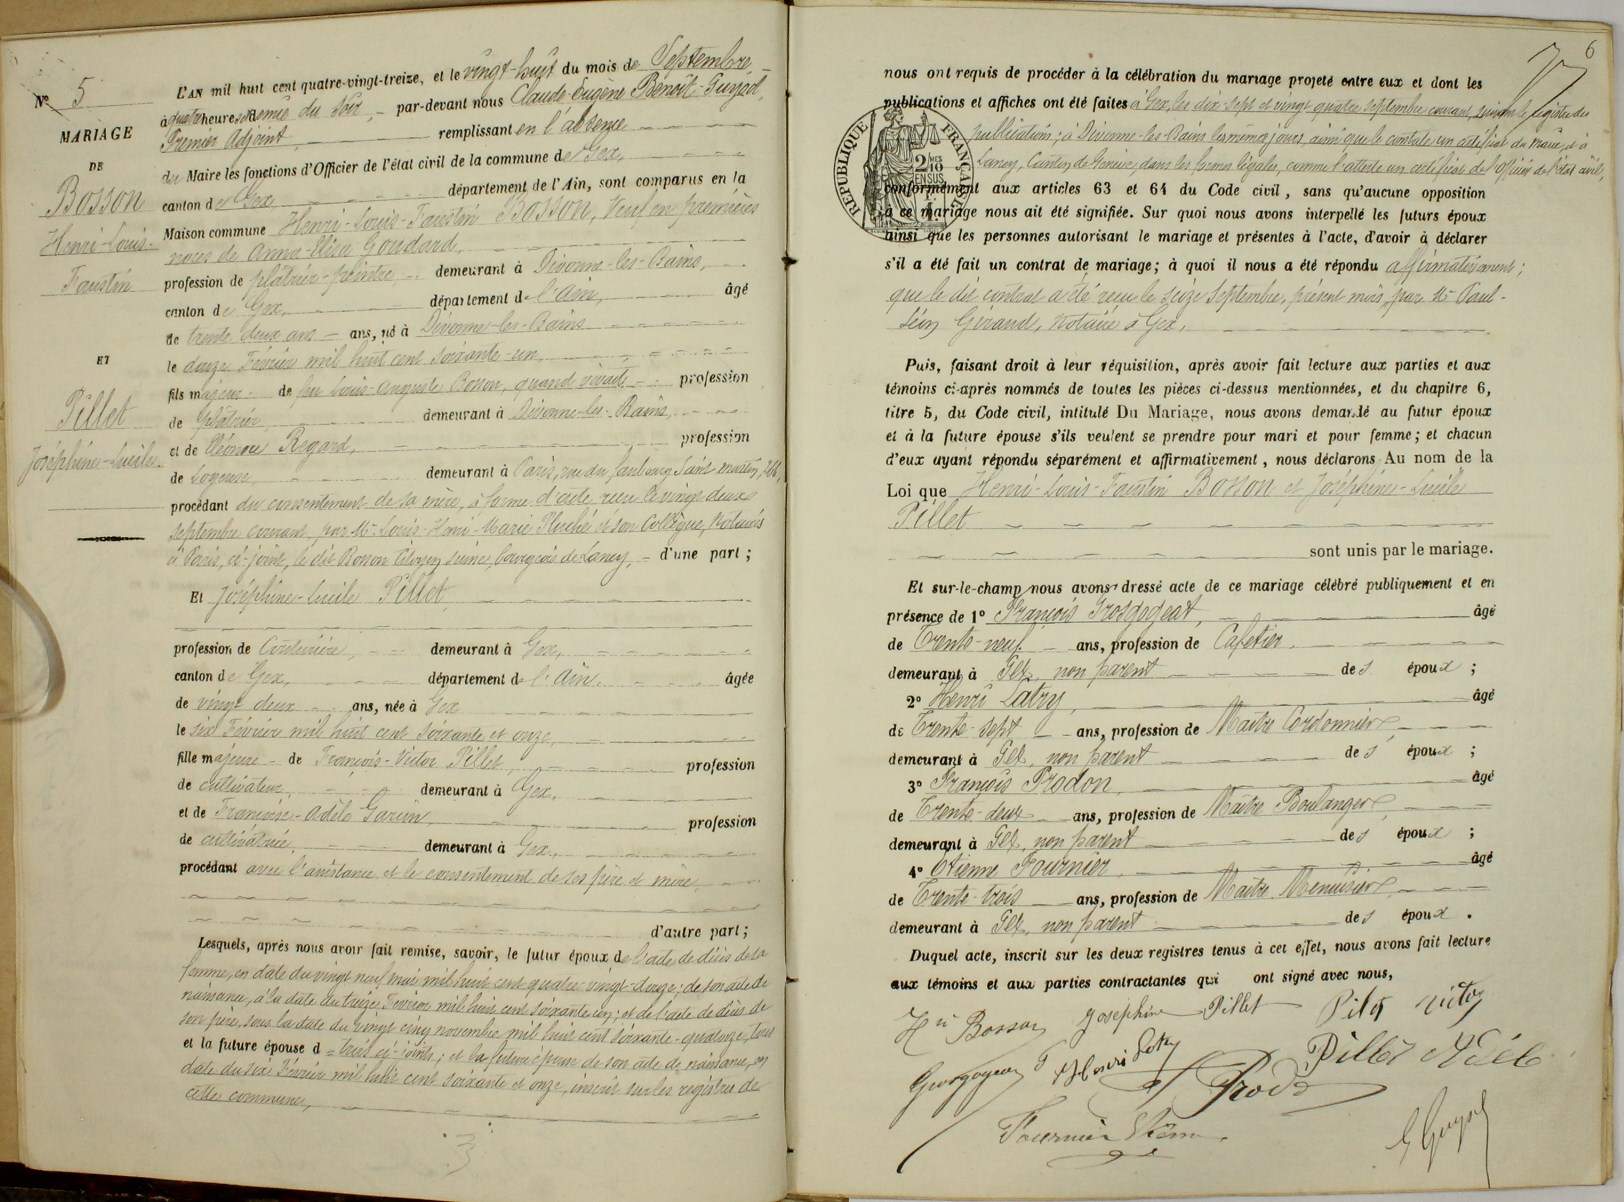 L'AN mil huit cent quatre-vingt-treize, et le vingt-huit du mois de Septembre
No 5
à quatre heures demie du soir, par-devant nous Claude-Eugène Benoît-Guyod,
Premier Adjoint remplissant en l'absence
MARIAGE
du Maire les fonctions d'Officier de l'état civil de la commune de Gex,
DE
canton de Gex département de l'Ain, sont comparus en la
Bosson
Maison commune Henri-Louis-Faustin Bosson, Veuf en premières
Henri-Louis-
noces de Anna Elisa Goudard,
Faustin
profession de plâtrier-peintre demeurant à Divonne-les-Bains,
canton de Gex, département de l'Ain, âgé
de trente deux ans ans, né à Divonne-les-Bains
le douze Février mil huit cent soixante-un,
ET
fils majeur de feu Louis-Auguste Bosson, quand vivait profession
Pillet
de plâtrier demeurant à Divonne-les-Bains,
et de Eléonore Regard, profession
Joséphine-Lucile
de demeurant à Paris, rue du faubourg Saint-Martin,
procédant du consentement de sa mère, à forme d'acte reçu le vingt-deux
septembre courant, par Me Louis-Henri-Marie et son Collègue, Notaires
à Paris, ci-joint, le dit Bosson Citoyen suisse, bourgeois de Lancy, d'une part ;
Et Joséphine-Lucile Pillet,
profession de Couturière, demeurant à Gex,
canton de Gex, département de l'Ain. âgée
de vingt deux ans, née à Gex
le six Février mil huit cent soixante et onze,
fille majeure de François-Victor Pillet, profession
de cultivateur, demeurant à Gex,
et de Françoise-Adèle Garin profession
de cultivatrice, demeurant à Gex,
procédant avec l'assistance et le consentement de ses père et mère,
d'autre part ;
Lesquels, après nous avoir fait remise, savoir, le futur époux de l'acte de décès de sa
femme, en date du vingt neuf mai mil huit cent quatre-vingt-douze ; de son acte de
naissance, à la date du treize Février mil huit cent soixante un ; et de l'acte de décès de
son père, sous la date du vingt cinq novembre mil huit cent soixante-quatorze, tous
et la future épouse d trois ci-joints ; et la future épouse de son acte de naissance, en
date du six Février mil huit cent soixante et onze, inscrit sur les registres de
cette commune,
3
6
nous ont requis de procéder à la célébration du mariage projeté entre eux et dont les
publications et affiches ont été faites à Gex, les dix sept et vingt quatre septembre courant, suivant le registre des
publications ; à Divonne-les-Bains les mêmes jours, ainsi que le constate un certificat du maire, et à
Lancy, Canton de Genève, dans les formes légales, comme l'atteste un certificat de l'officier de l'état civil,
RÉPUBLIQUE FRANÇAISE
conformément aux articles 63 et 64 du Code civil, sans qu'aucune opposition
à ce mariage nous ait été signifiée. Sur quoi nous avons interpellé les futurs époux
ainsi que les personnes autorisant le mariage et présentes à l'acte, d'avoir à déclarer
s'il a été fait un contrat de mariage ; à quoi il nous a été répondu affirmativement ;
que le dit contrat a été reçu le seize Septembre, présent mois, par Me Paul-
Léon Géraud, Notaire à Gex,
Puis, faisant droit à leur réquisition, après avoir fait lecture aux parties et aux
témoins ci-après nommés de toutes les pièces ci-dessus mentionnées, et du chapitre 6,
titre 5, du Code civil, intitulé Du Mariage, nous avons demandé au futur époux
et à la future épouse s'ils veulent se prendre pour mari et pour femme ; et chacun
d'eux ayant répondu séparément et affirmativement, nous déclarons Au nom de la
Loi que Henri-Louis-Faustin Bosson et Joséphine-Lucile
Pillet
sont unis par le mariage.
Et sur-le-champ nous avons dressé acte de ce mariage célébré publiquement et en
présence de 1o François Grosgogeat, âgé
de Trente-neuf ans, profession de Cafetier
demeurant à Gex, non parent des époux ;
2o Henri Latry, âgé
de Trente-sept ans, profession de Maître Cordonnier,
demeurant à Gex, non parent des époux ;
3o François Prodon, âgé
de Trente-deux ans, profession de Maître Boulanger,
demeurant à Gex, non parent des époux ;
4o Etienne Fournier, âgé
de Trente-trois ans, profession de Maître Menuisier,
demeurant à Gex, non parent des époux.
Duquel acte, inscrit sur les deux registres tenus à cet effet, nous avons fait lecture
aux témoins et aux parties contractantes qui ont signé avec nous,
Hri Bosson Joséphine Pillet Pilet Victor
Grosgogeat F Henri Latry Pillet Adèle
F Prodon
Fournier Etienne
E Guyod